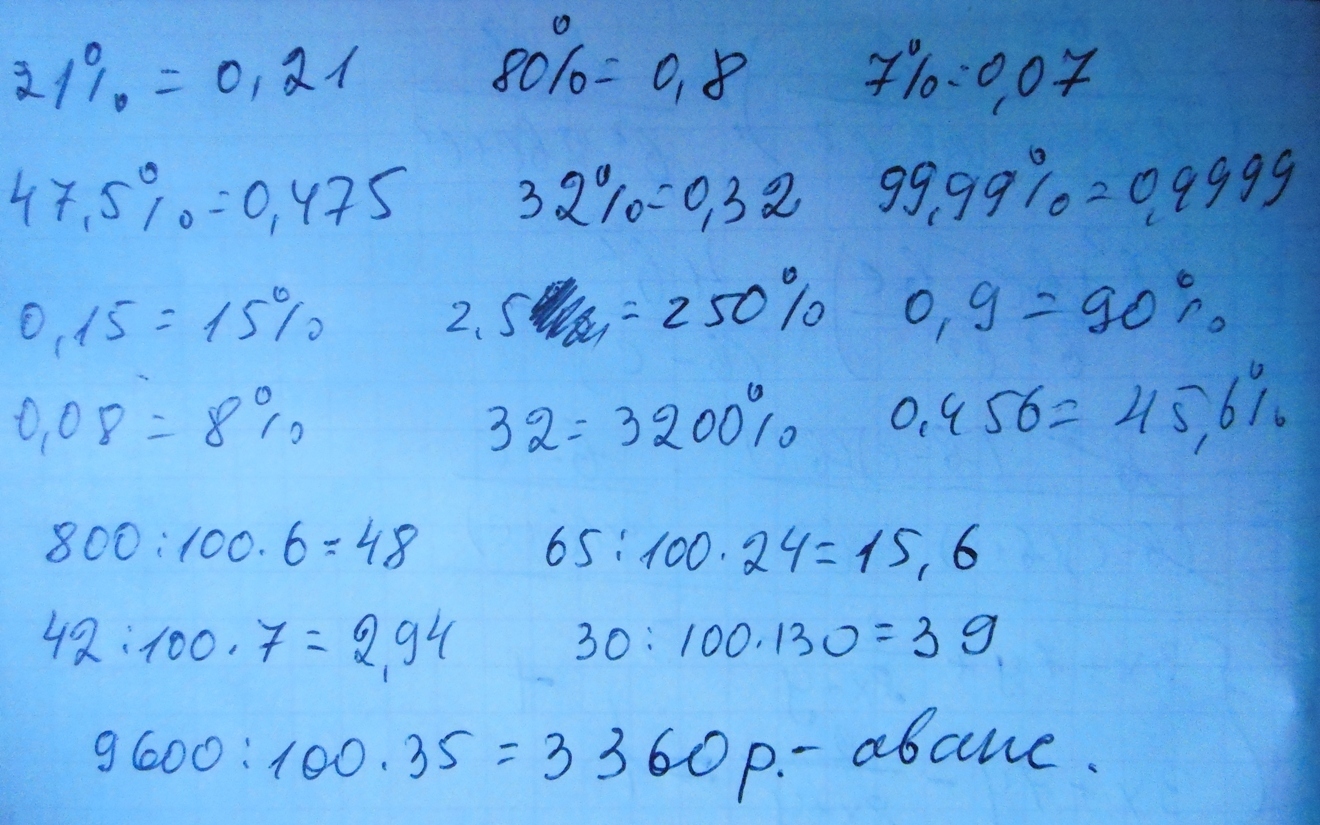 21% = 0,21 80% = 0,8 7% = 0,07
47,5% = 0,475 32% = 0,32 99,99% = 0,9999
0,15 = 15% 2,5 = 250% 0,9 = 90%
0,08 = 8% 32 = 3200% 0,456 = 45,6%
800 : 100 · 6 = 48 65 : 100 · 24 = 15,6
42 : 100 · 7 = 2,94 30 : 100 · 130 = 39
9600 : 100 · 35 = 3360 р. - аванс.